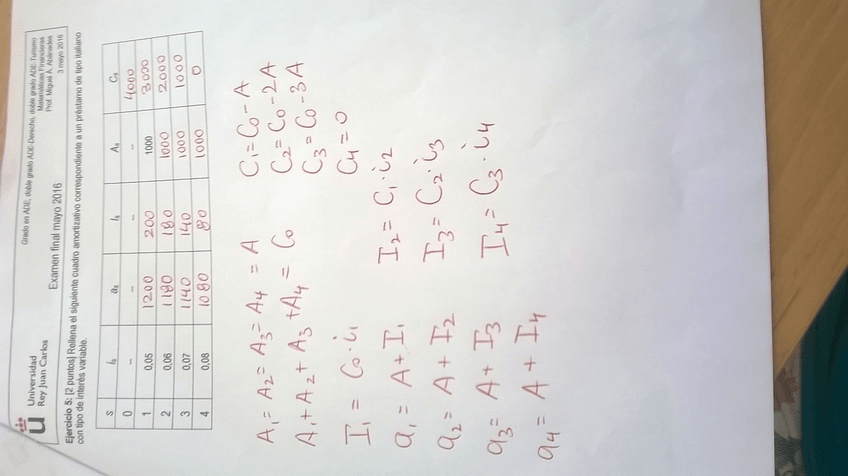 Universidad
Rey Juan Carlos
Grado en ADE, doble grado ADE-Derecho, doble grado ADE-Turismo
Matemáticas Financieras
Prof. Miguel A.
3 mayo 2016
Examen final mayo 2016
Ejercicio 5: [2 puntos] Rellena el siguiente cuadro amortizativo correspondiente a un préstamo de tipo italiano
con tipo de interés variable.
s iₛ aₛ Iₛ Aₛ Cₛ
0 -- -- -- -- 4000
1 0,05 1200 200 1000 3000
2 0,06 1180 180 1000 2000
3 0,07 1140 140 1000 1000
4 0,08 1080 80 1000 0
A₁ = A₂ = A₃ = A₄ = A C₁ = C₀ - A
A₁ + A₂ + A₃ + A₄ = C₀ C₂ = C₀ - 2A
C₃ = C₀ - 3A
I₁ = C₀ · i₁ C₄ = 0
a₁ = A + I₁ I₂ = C₁ · i₂
a₂ = A + I₂ I₃ = C₂ · i₃
a₃ = A + I₃ I₄ = C₃ · i₄
a₄ = A + I₄